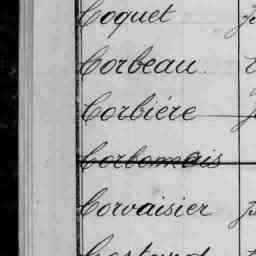 Coquet
Corbeau
Corbière
Corbomais
Corvaisier